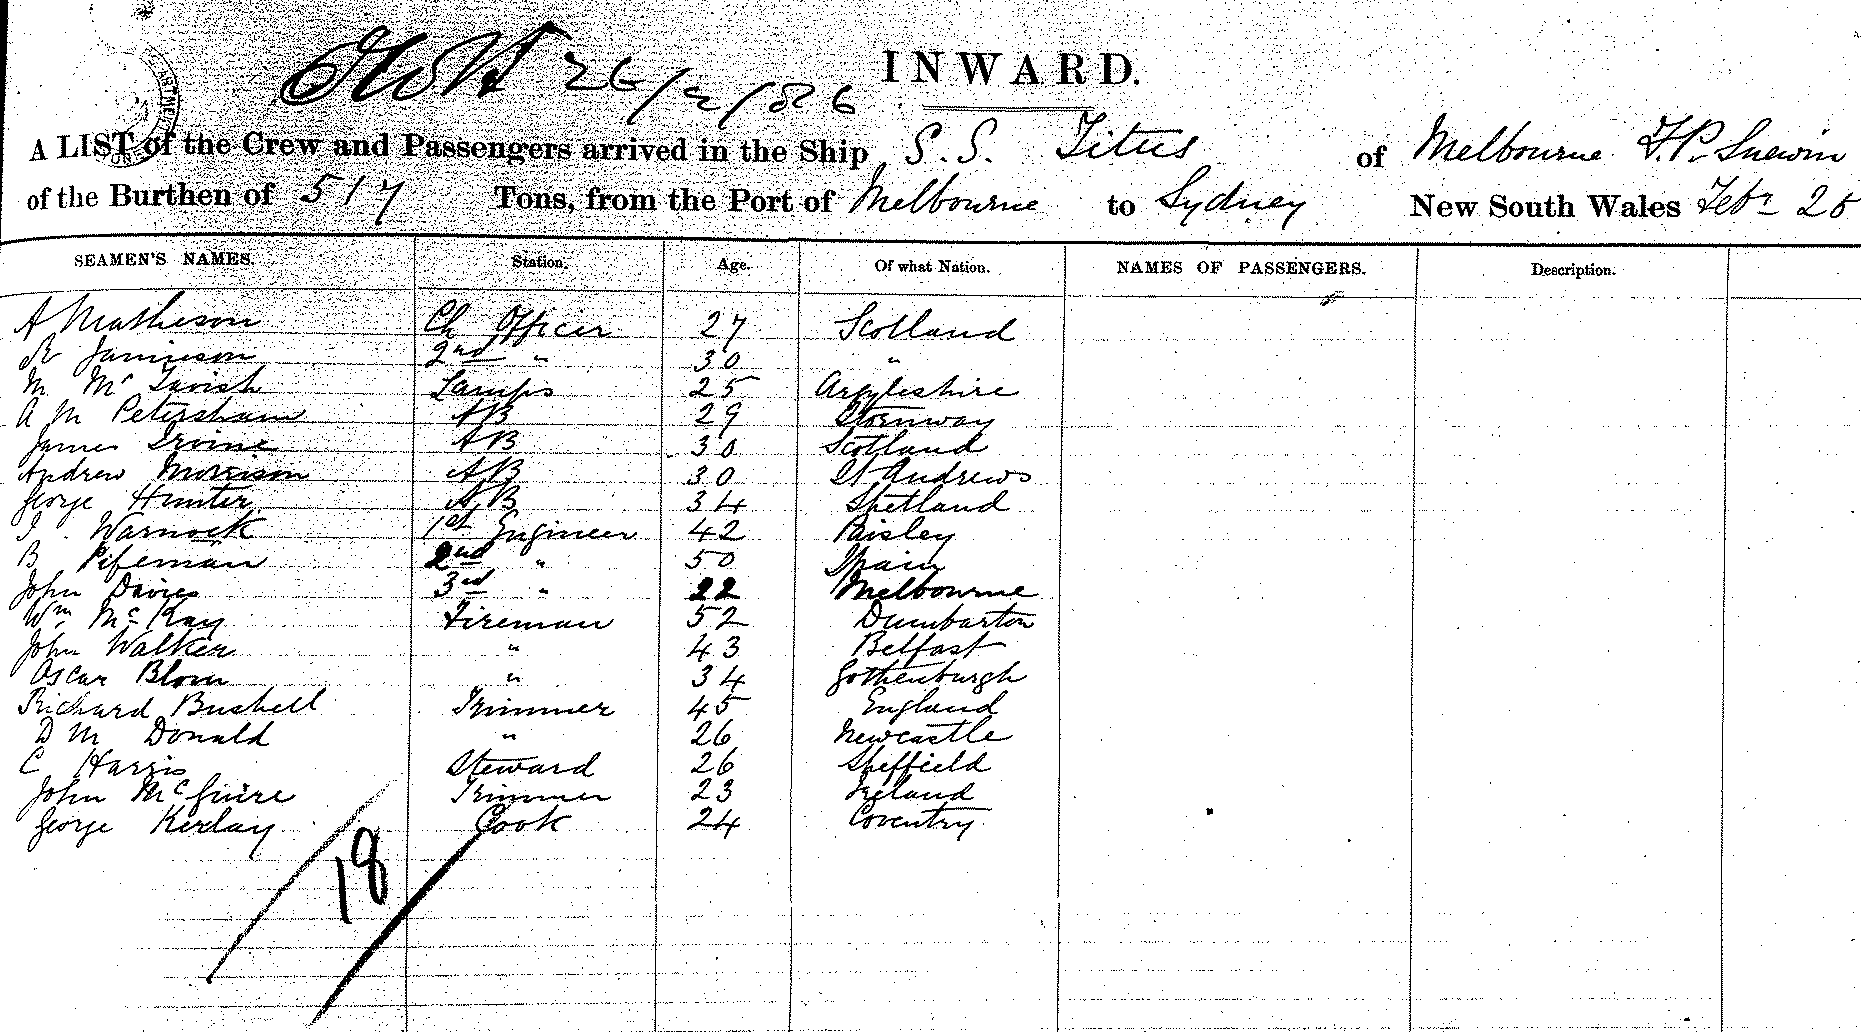 26/2/86
INWARD.
A LIST of the Crew and Passengers arrived in the Ship S.S. Titus of Melbourne F.P. Snewin
of the Burthen of 517 Tons, from the Port of Melbourne to Sydney New South Wales Febr 25
SEAMEN'S NAMES. Station. Age. Of what Nation. NAMES OF PASSENGERS. Description.
A Matheson Ch Officer 27 Scotland
R Jamieson 2nd " 30 "
M McTavish Lamps 25 Argyleshire
A M Petersham AB 29 Stornway
James Irvine AB 30 Scotland
Andrew Morrison AB 30 St Andrews
George Hunter AB 34 Shetland
Warnock 1st Engineer 42 Paisley
B Pifeman 2nd " 50 Spain
John Davies 3rd " 22 Melbourne
Wm McKay Fireman 52 Dumbarton
John Walker " 43 Belfast
Oscar Blom " 34 Gothenburgh
Richard Bushell Trimmer 45 England
D M Donald " 26 Newcastle
C Harris Steward 26 Sheffield
John McGuire Trimmer 23 Ireland
George Kerlay Cook 24 Coventry
18